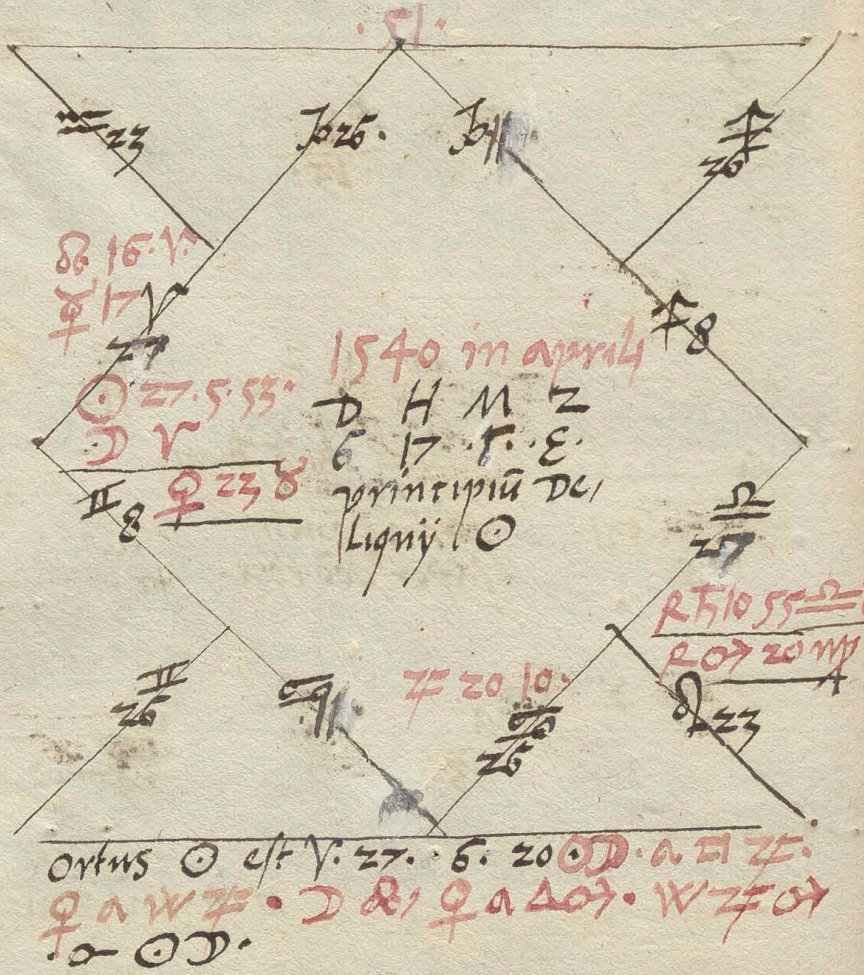 · 51 ·
♒ 23
♑ 26 ·
♑ 11
♐ 26
☊ 16 · ♈ ·
☿ 17 ♈
27
☉ 27 · 5 · 53 ·
☽ ♈
♊ 8 ♀ 23 ♉
1540 in aprili
D H M Z
6 17 · 8 · ·
principiũ De,
liquij · ☉
♐ 8
♎ 27
R ♄ 10 55 ♎
R ♂ 20 ♍
♃ 20 10 ·
♊ 26
♋ 11
♋ 26
♌ 23
Ortus ☉ est ♈ · 27 · · 6 · 20 ☉ ☽ · a □ ♃ ·
♀ a ♃ · ☽ &, ♀ a △ ♂ · ♃ ♂
· a ☉ ☽ ·